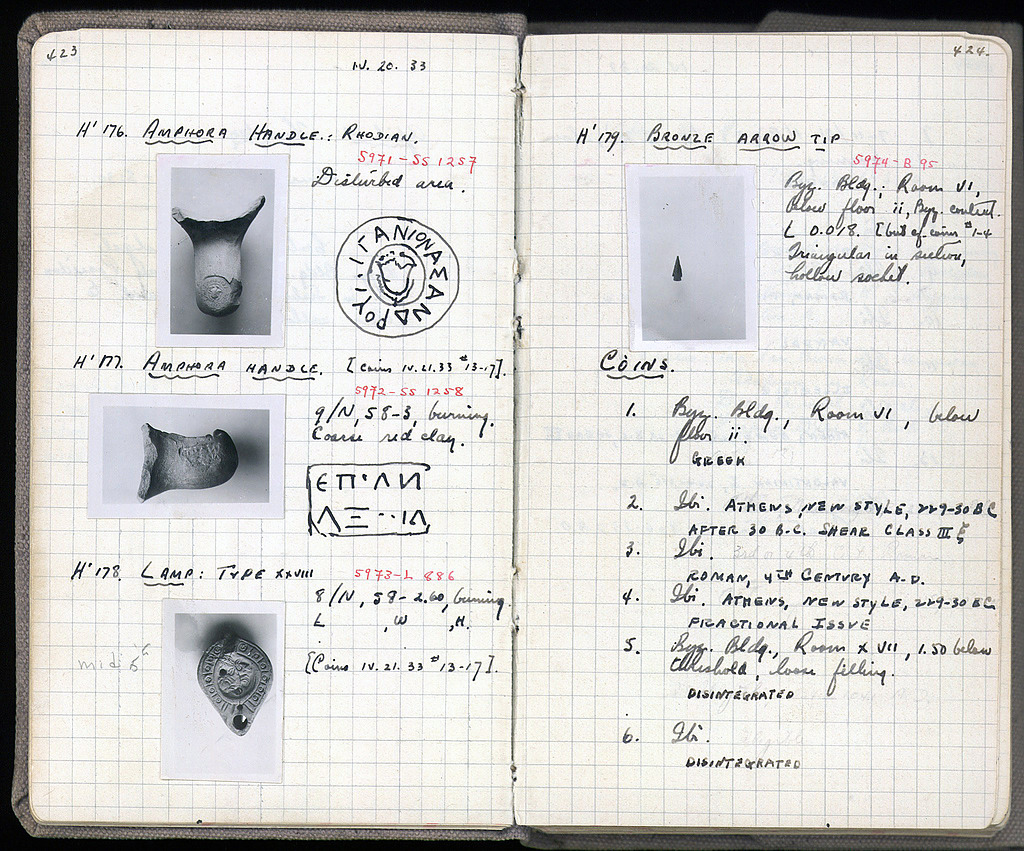 423
IV. 20. 33
H' 176. AMPHORA HANDLE: RHODIAN.
5971 - SS 1257
Disturbed area.
H' 177. AMPHORA HANDLE. [Coins IV.21.33 #13-17].
5972 - SS 1258
9/N, 58-3, burning.
Coarse red clay.
ΕΠ'ΛΝ
ΛΞ··ΙΔ
H' 178. LAMP: TYPE XXVIII
5973 - L 886
8/N, 59-2.60, burning.
L , W , H.
[Coins IV.21.33 #13-17].
424.
H' 179. BRONZE ARROW TIP
5974 - B 95
Byz. Bldg.; Room VI,
below floor ii, Byz. context.
L 0.018. [but cf. coins #1-4
Triangular in section,
hollow socket.
COINS.
1. Byz. Bldg., Room VI, below
floor ii.
GREEK
2. Ibi. ATHENS, NEW STYLE, 229-30 BC
AFTER 30 B.C. SHEAR CLASS III ξ
3. Ibi.
ROMAN, 4TH CENTURY A.D.
4. Ibi. ATHENS, NEW STYLE, 229-30 BC
FRACTIONAL ISSUE
5. Byz. Bldg., Room XVII, 1.50 below
threshold, loose filling.
DISINTEGRATED
6. Ibi.
DISINTEGRATED